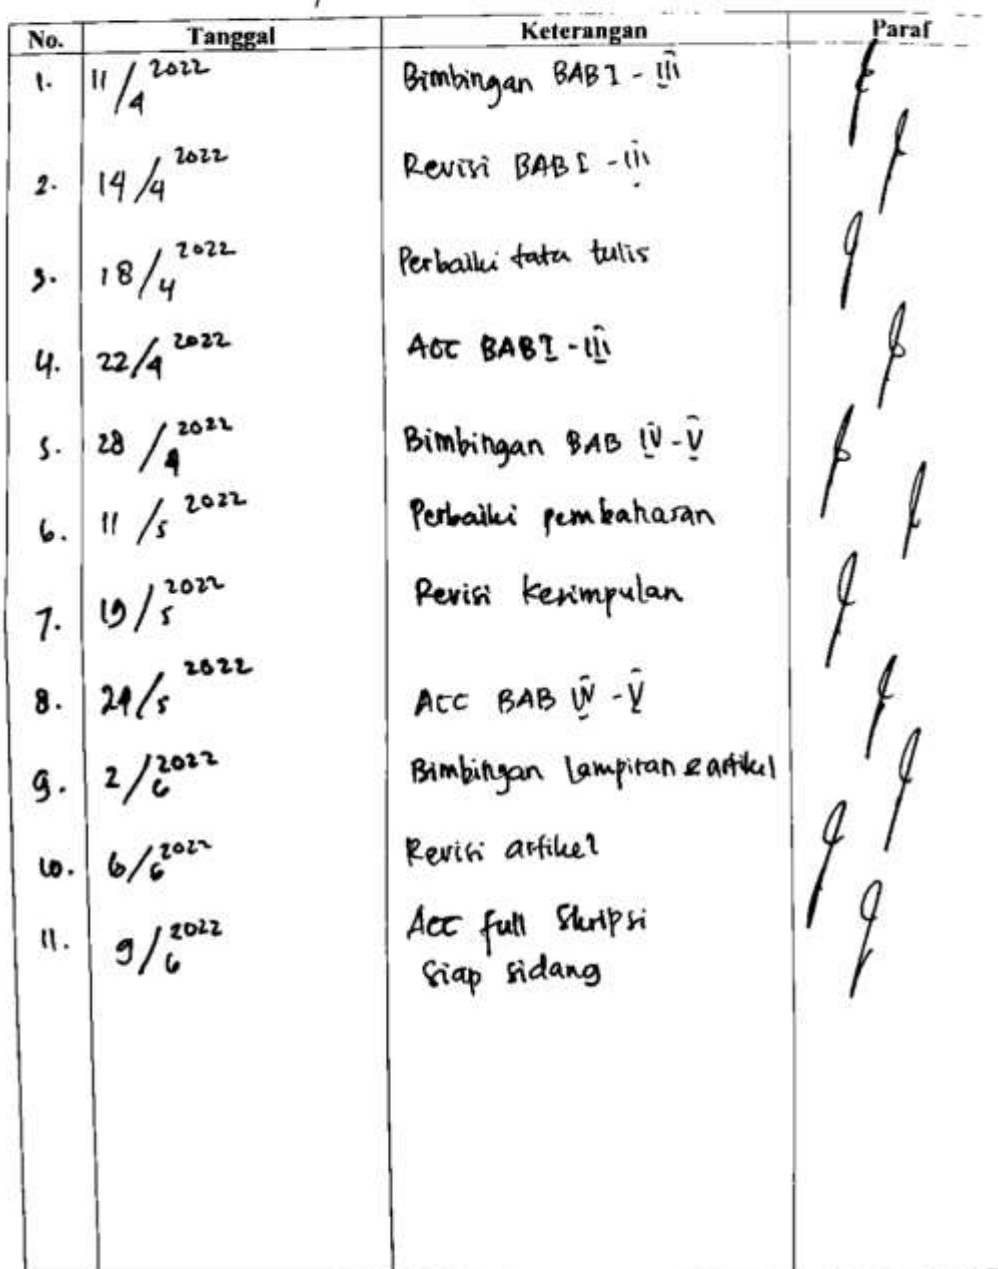 No. Tanggal Keterangan Paraf
1. 11/4 2022 Bimbingan BAB I - III
2. 14/4 2022 Revisi BAB I - III
3. 18/4 2022 Perbaiki tata tulis
4. 22/4 2022 ACC BAB I - III
5. 28/4 2022 Bimbingan BAB IV - V
6. 11/5 2022 Perbaiki pembahasan
7. 19/5 2022 Revisi kesimpulan
8. 24/5 2022 ACC BAB IV - V
9. 2/6 2022 Bimbingan Lampiran & artikel
10. 6/6 2022 Revisi artikel
11. 9/6 2022 Acc full Skripsi
siap sidang